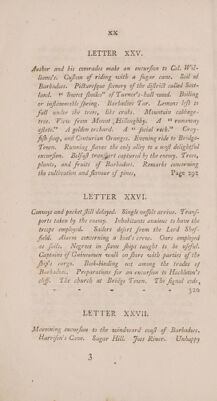 XX
LETTER XXV.
Author and his comrades make an excursion to Col. Wil-
liams's. Custom of riding with a sugar cane. Soil of
Barbadoes. Picturesque scenery of the district called Scot-
land. "Sweet smells" of Turner's-hall wood. Boiling
or inflammable spring. Barbadoes Tar. Lemons left to
fall under the trees, like crabs. Mountain cabbage-
tree. View from Mount Hilloughby. A "runaway
estate." A golden orchard. A "social rock." Grey-
fish-shop, and Centurion Oranges. Evening ride to Bridge-
Town. Running slaves the only alloy to a most delightful
excursion. Belfast transport captured by the enemy. Trees,
plants, and fruits of Barbadoes. Remarks concerning
the cultivation and flavour of pines, Page 292
LETTER XXVI.
Convoys and packet still delayed. Single vessels arrive. Trans-
ports taken by the enemy. Inhabitants anxious to have the
troops employed. Sailors desert from the Lord Shef-
field. Alarm concerning a boat's crew. Oars employed
as sails. Negroes in some ships taught to be useful.
Captains of Guineamen wait on shore with parties of the
ship's cargo. Book-binding not among the trades of
Barbadoes. Preparations for an excursion to Hackleton's
cliff. The church at Bridge Town. The signal code,
- - - - - 320
LETTER XXVII.
Mooning excursion to the windward coast of Barbadoes.
Harrison's Cave. Sugar Hill. Joes River. Unhappy
3